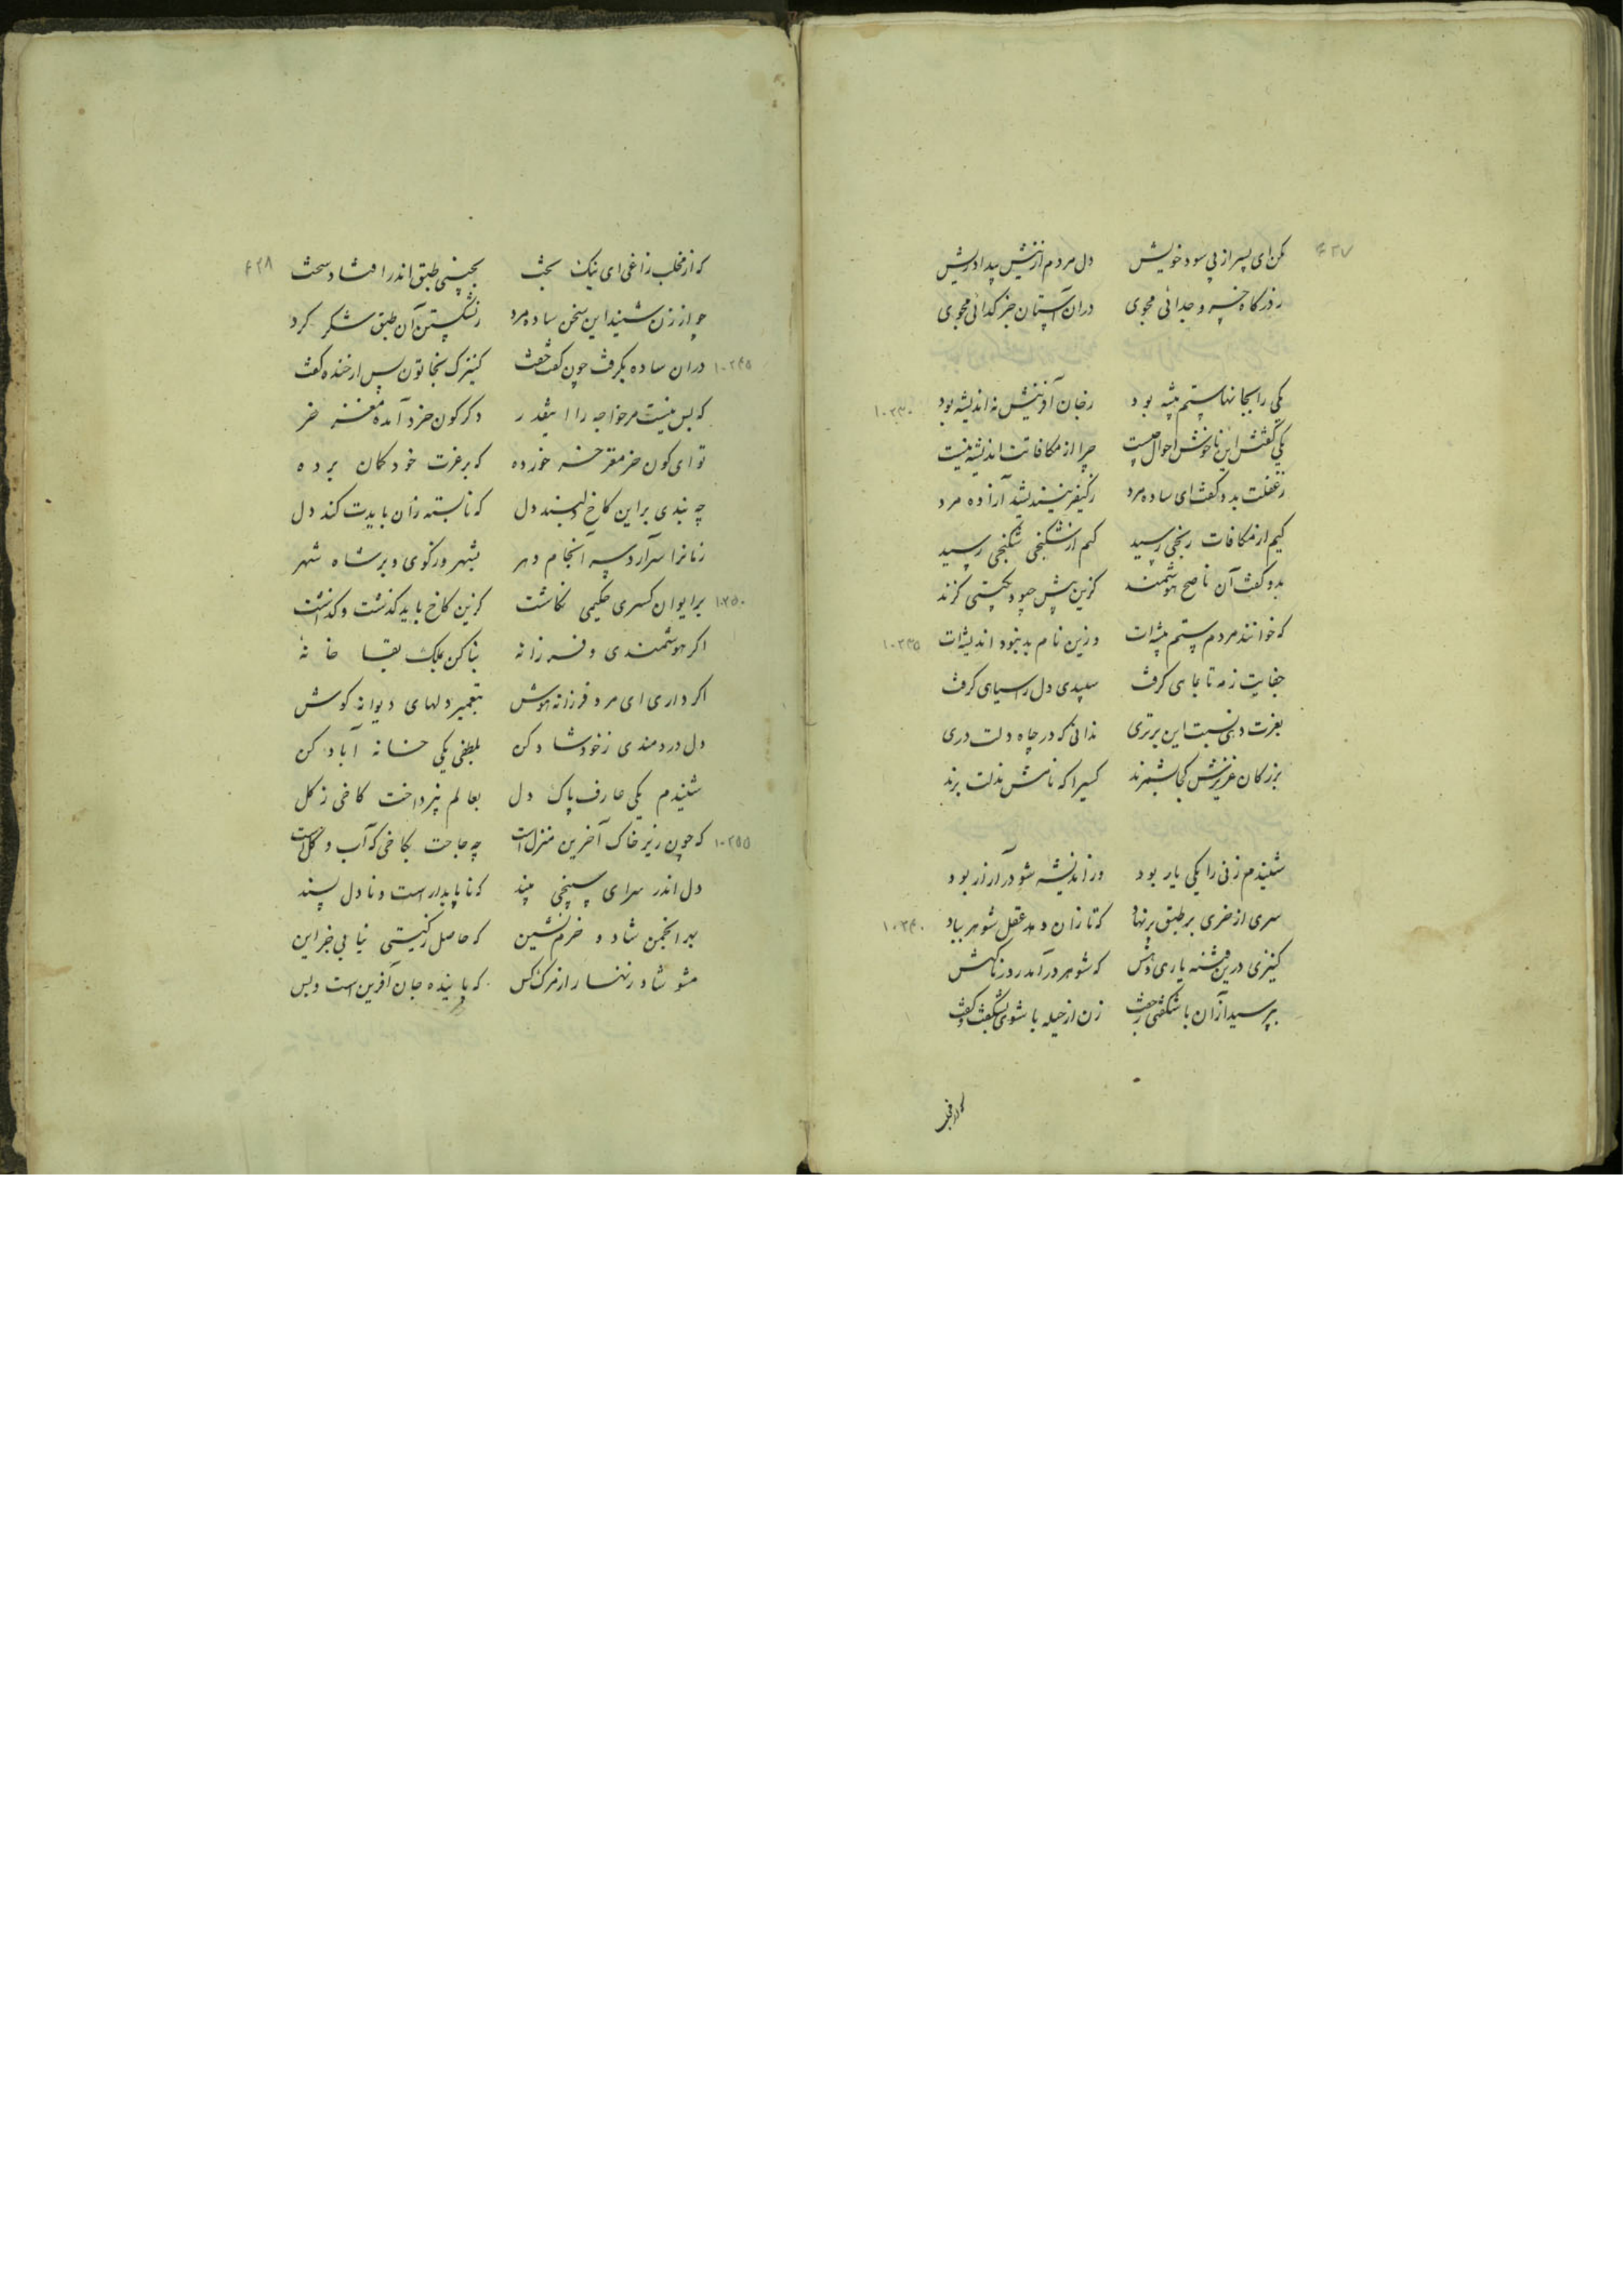 ۴۲۷
مکن ای پسر از پی سود خویش دل مردم از نیش بیداد ریش
ز درگاه خسرو جدائی مجوی در آن آستان جز گدائی مجوی
یکی را بجانها ستم پیشه بود ز جان آفرینش نه اندیشه بود ۱۰۲۳۰
یکی گفتش این ناخوش احوال چیست چرا از مکافاتت اندیشه نیست
ز غفلت بدو گفت ای ساده مرد ز کیفر نیندیشد آزاده مرد
کیم از مکافات رنجی رسید کیم از شکنجی شکنجی رسید
بدو گفت آن ناصح هوشمند کزین بیش چبود بگیتی گزند
که خوانند مردم ستم پیشه‌ات وزین نام بد نبود اندیشه‌ات ۱۰۲۳۵
جفایت ز مه تا بماهی گرفت سپیدی دل را سیاهی گرفت
بعزت دهی نسبت این برتری ندانی که در چاه ذلت دری
بزرگان عزیزش کجا شمرند کسیرا که نامش بذلت برند
شنیدم زنی را یکی یار بود وز اندیشه شو در آزار بود
سری از خری بر طبق برنهاد که تا زان دهد عقل شوهر بباد ۱۰۲۴۰
کنیزی درین فتنه یاری دهش که شوهر در آمد ز در ناگهش
بپرسید از آن با شگفتی ز جفت زن از حیله با شوی بشگفت و گفت
که از مخلب
۴۲۸
که از مخلب زاغی ای نیک بخت بچینی طبق اندر افتاد سخت
چو از زن شنید این سخن ساده مرد ز نشکستن آن طبق شکر کرد
در آن ساده بگرفت چون گفت خفت کنیزک بخاتون پس از خنده گفت ۱۰۲۴۵
که بس نیست مر خواجه را اینقدر دگرگون خرد آمده مغز خر
تو ای کون خر مغز خر خورده که بر غرت خود گمان برده
چه بندی بر این کاخ دلبند دل که نابسته زان بایدت کند دل
زنانرا سرآرد سرانجام دهر بشهر و زکوی و بر شاه شهر
بر ایوان کسری حکیمی نگاشت کزین کاخ باید گذشت و گذاشت ۱۰۲۵۰
اگر هوشمندی و فرزانه بنا کن بملک بقا خانه
اگر داری ای مرد فرزانه هوش بتعمیر دلهای دیوانه کوش
دل دردمندی ز خود شاد کن بلطفی یکی خانه آباد کن
شنیدم یکی عارف پاک دل بعالم نپرداخت کاخی ز گل
که چون زیر خاک آخرین منزل است چه حاجت بکاخی که آب و گل است ۱۰۲۵۵
دل اندر سرای سپنجی مبند که ناپایدار است و نادل پسند
بهر انجمن شاد و خرم نشین که حاصل ز گیتی نیابی جز این
مشو شاد زنهار از مرگ کس که پاینده جان آفرین است و بس